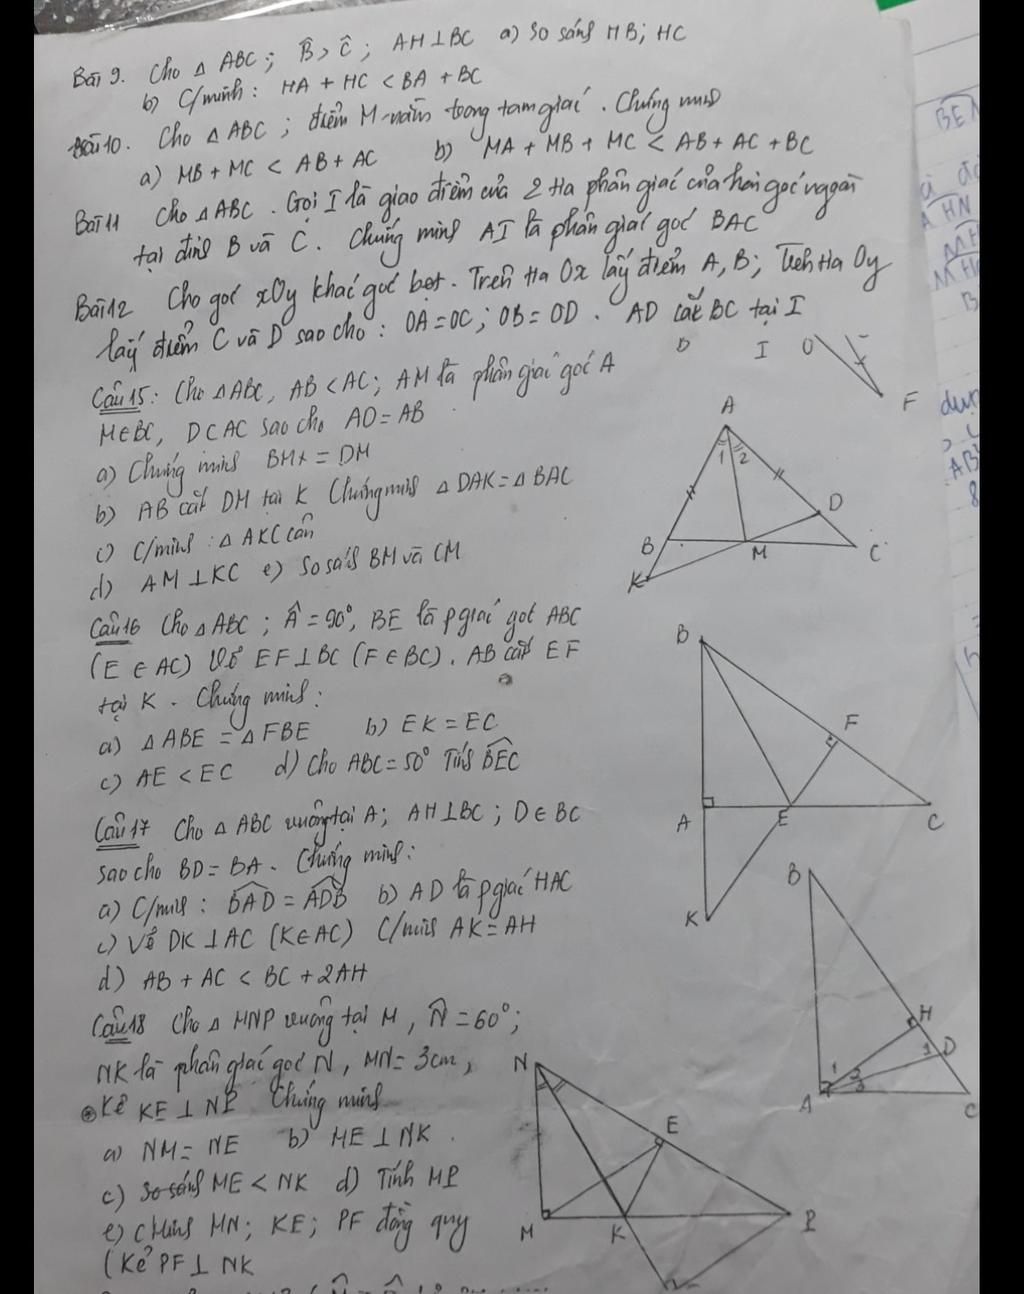 Bài 9. Cho △ ABC ; B̂ > Ĉ ; AH ⊥ BC a) So sánh HB ; HC
b) C/minh : HA + HC < BA + BC
Bài 10. Cho △ ABC ; điểm M nằm trong tam giác . Chứng minh
a) MB + MC < AB + AC b) MA + MB + MC < AB + AC + BC
Bài 11 Cho △ ABC . Gọi I là giao điểm của 2 tia phân giác của hai góc ngoài
tại đỉnh B và C . Chứng minh AI là phân giác góc BAC
Bài 12 Cho góc xOy khác góc bẹt . Trên tia Ox lấy điểm A, B ; Trên tia Oy
lấy điểm C và D sao cho : OA = OC ; OB = OD . AD cắt BC tại I
D I O
F
Câu 15 : Cho △ ABC, AB < AC ; AM là phân giác góc A
M ∈ BC, D ⊂ AC sao cho AD = AB
a) Chứng minh BM = DM
b) AB cắt DM tại K Chứng minh △ DAK = △ BAC
c) C/minh : △ AKC cân
d) AM ⊥ KC e) So sánh BM và CM
A
1 2
B M D C
K
Câu 16 Cho △ ABC ; Â = 90°, BE là p giác góc ABC
(E ∈ AC) Vẽ EF ⊥ BC (F ∈ BC) . AB cắt EF
tại K . Chứng minh :
a) △ ABE = △ FBE b) EK = EC
c) AE < EC d) Cho ABC = 50° Tính BEC
B
F
A E C
K
Câu 17 Cho △ ABC vuông tại A ; AH ⊥ BC ; D ∈ BC
sao cho BD = BA . Chứng minh :
a) C/minh : BAD = ADB b) AD là p giác HAC
c) Vẽ DK ⊥ AC (K ∈ AC) C/minh AK = AH
d) AB + AC < BC + 2AH
B
H
1 D
1 2 3
A C
Câu 18 Cho △ MNP vuông tại M , N̂ = 60° ;
NK là phân giác góc N , MN = 3cm ,
Kẻ KE ⊥ NP Chứng minh
a) NM = NE b) ME ⊥ NK .
c) So sánh ME < NK d) Tính MP
e) C minh MN ; KE ; PF đồng quy
(Kẻ PF ⊥ NK
N
E
M K P